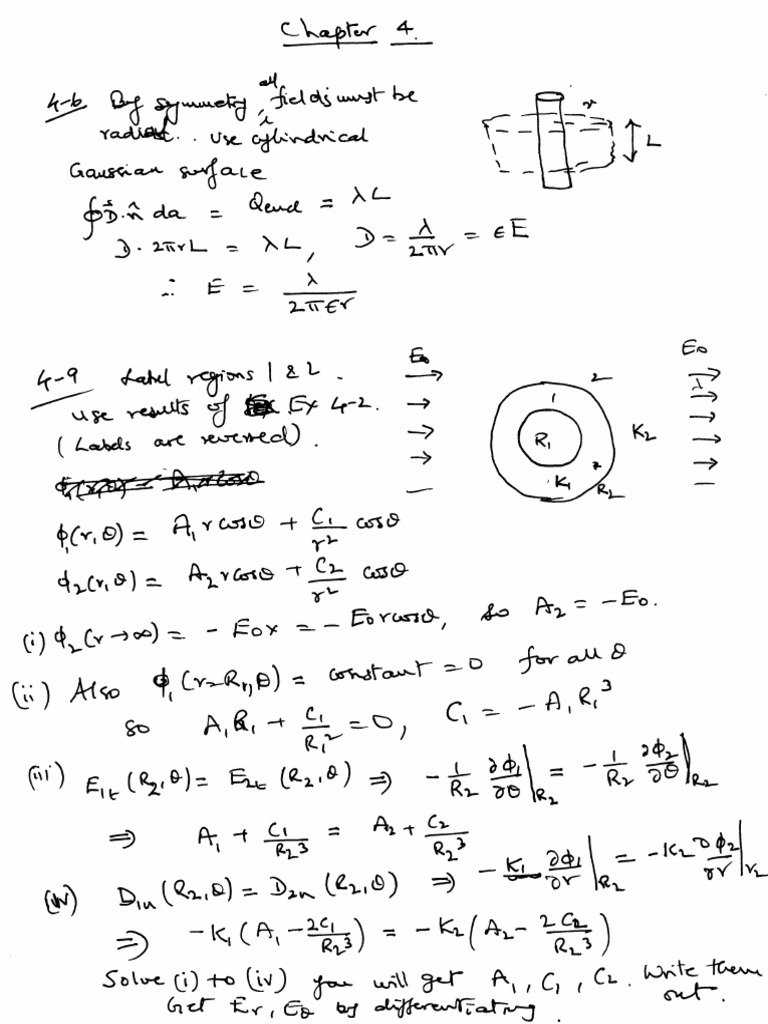 Chapter 4.
4-6 By symmetry, all fields must be
radial. Use cylindrical
Gaussian surface
∮D·n̂ da = Qencl = λL
D·2πrL = λL, D = λ/2πr = εE
∴ E = λ/2πεr
r
L
4-9 Label regions 1 & 2.
Use results of Ex 4-2.
(Labels are reversed).
φ₁(r,θ) = A₁rcosθ + C₁/r² cosθ
φ₂(r,θ) = A₂rcosθ + C₂/r² cosθ
E₀
E₀
2
1
R₁
K₂
K₁
R₂
(i) φ₂(r→∞) = -E₀x = -E₀rcosθ, so A₂ = -E₀.
(ii) Also φ₁(r=R₁,θ) = constant = 0 for all θ
so A₁R₁ + C₁/R₁² = 0, C₁ = -A₁R₁³
(iii) E₁t(R₂,θ) = E₂t(R₂,θ) ⇒ -1/R₂ ∂φ₁/∂θ|R₂ = -1/R₂ ∂φ₂/∂θ|R₂
⇒ A₁ + C₁/R₂³ = A₂ + C₂/R₂³
(iv) D₁n(R₂,θ) = D₂n(R₂,θ) ⇒ -K₁ ∂φ₁/∂r|R₂ = -K₂ ∂φ₂/∂r|r₂
⇒ -K₁(A₁ - 2C₁/R₂³) = -K₂(A₂ - 2C₂/R₂³)
Solve (i) to (iv) you will get A₁, C₁, C₂. Write them
out.
Get Er, Eθ by differentiating.